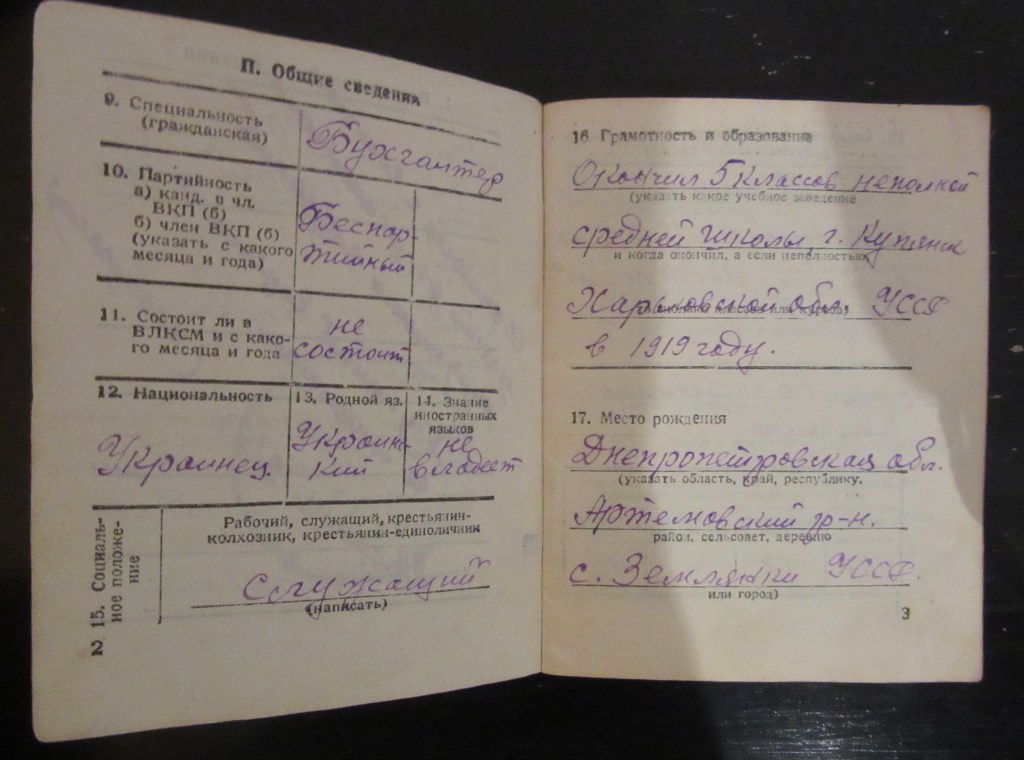 II. Общие сведения
9. Специальность
(гражданская)
Бухгалтер
10. Партийность
а) канд. в чл.
ВКП (б)
б) член ВКП (б)
(указать с какого
месяца и года)
Беспар-
тийный
11. Состоит ли в
ВЛКСМ и с како-
го месяца и года
не
состоит
12. Национальность
Украинец
13. Родной яз.
Украинс-
кий
14. Знание
иностранных
языков
не
владеет
15. Социаль-
ное положе-
ние
Рабочий, служащий, крестьянин-
колхозник, крестьянин-единоличник
Служащий
(написать)
2
16. Грамотность и образование
Окончил 5 классов неполной
(указать какое учебное заведение
средней школы, г. Купянск
и когда окончил, а если неполностью,
Харьковской обл. УССР
сколько классов или курсов)
в 1919 году.
17. Место рождения
Днепропетровская обл.
(указать область, край, республику.
Артемовский р-н.
район, сельсовет, деревню
с. Землянки УССР.
или город)
3